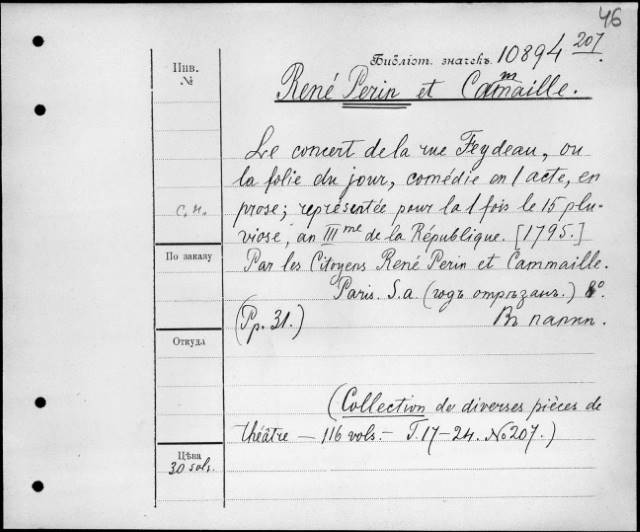 46
Библіот. значекъ 10894 207.
Инв.
№
René Perin et Cammaille.
Le concert de la rue Feydeau, ou
la folie du jour, comédie en 1 acte, en
с.н. prose; représentée pour la 1 fois le 15 plu-
viose, an IIIme de la République. [1795.]
По заказу
Par les Citoyens René Perin et Cammaille.
Paris. S.a. (годъ отрѣзанъ.) 8°.
(Pp. 31.) Въ папкѣ.
Откуда
(Collection de diverses pièces de
théâtre — 116 vols. — T. 17-24. No 207.)
Цѣна
30 sols.